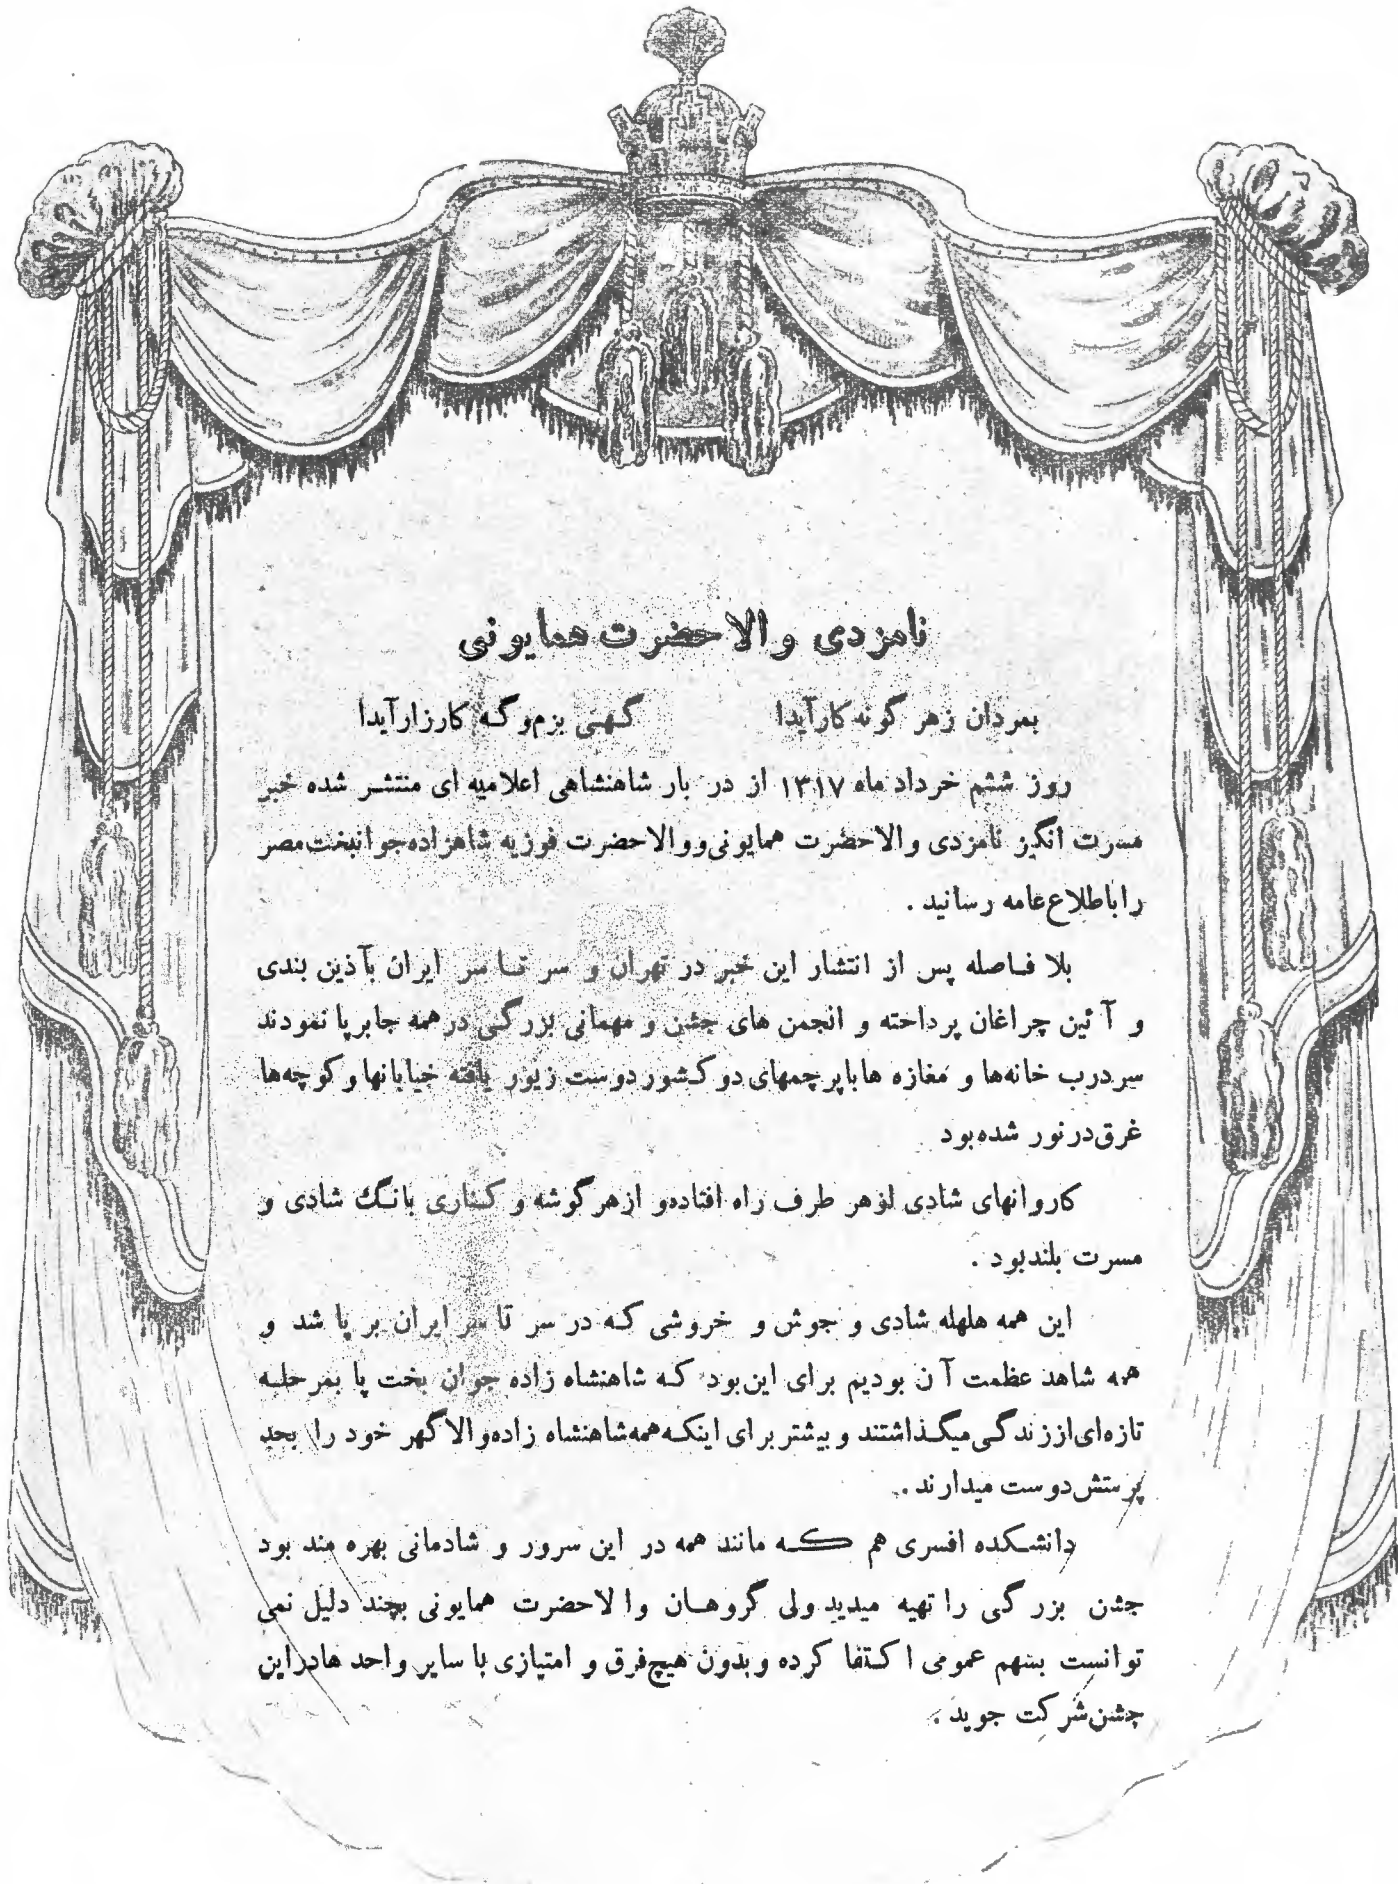 نامزدی والاحضرت همایونی
بمردان زهر گونه کارآیدا گهی بزم و گه کارزار آیدا
روز ششم خرداد ماه ۱۳۱۷ از در بار شاهنشاهی اعلامیه ای منتشر شده خبر
مسرت انگیز نامزدی والاحضرت همایونی و والاحضرت فوزیه شاهزاده جوانبخت مصر
را باطلاع عامه رسانید .
بلا فاصله پس از انتشار این خبر در تهران و سر تا سر ایران بآذین بندی
و آئین چراغان پرداخته و انجمن های جشن و مهمانی بزرگی در همه جا برپا نمودند
سر درب خانه‌ها و مغازه ها با پرچمهای دو کشور دوست زیور یافته خیابانها و کوچه‌ها
غرق در نور شده بود
کاروانهای شادی از هر طرف راه افتاده و از هر گوشه و کناری بانگ شادی و
مسرت بلند بود .
این همه هلهله شادی و جوش و خروشی که در سر تا سر ایران بر پا شد و
همه شاهد عظمت آن بودیم برای این بود که شاهنشاه زاده جوان بخت پا بمرحله
تازه‌ای از زندگی میگذاشتند و بیشتر برای اینکه همه شاهنشاه زاده والاگهر خود را بحد
پرستش دوست میدارند .
دانشکده افسری هم که مانند همه در این سرور و شادمانی بهره مند بود
جشن بزرگی را تهیه میدید ولی گروهان والاحضرت همایونی بچند دلیل نمی
توانست بسهم عمومی اکتفا کرده و بدون هیچ فرق و امتیازی با سایر واحد ها در این
جشن شرکت جوید .